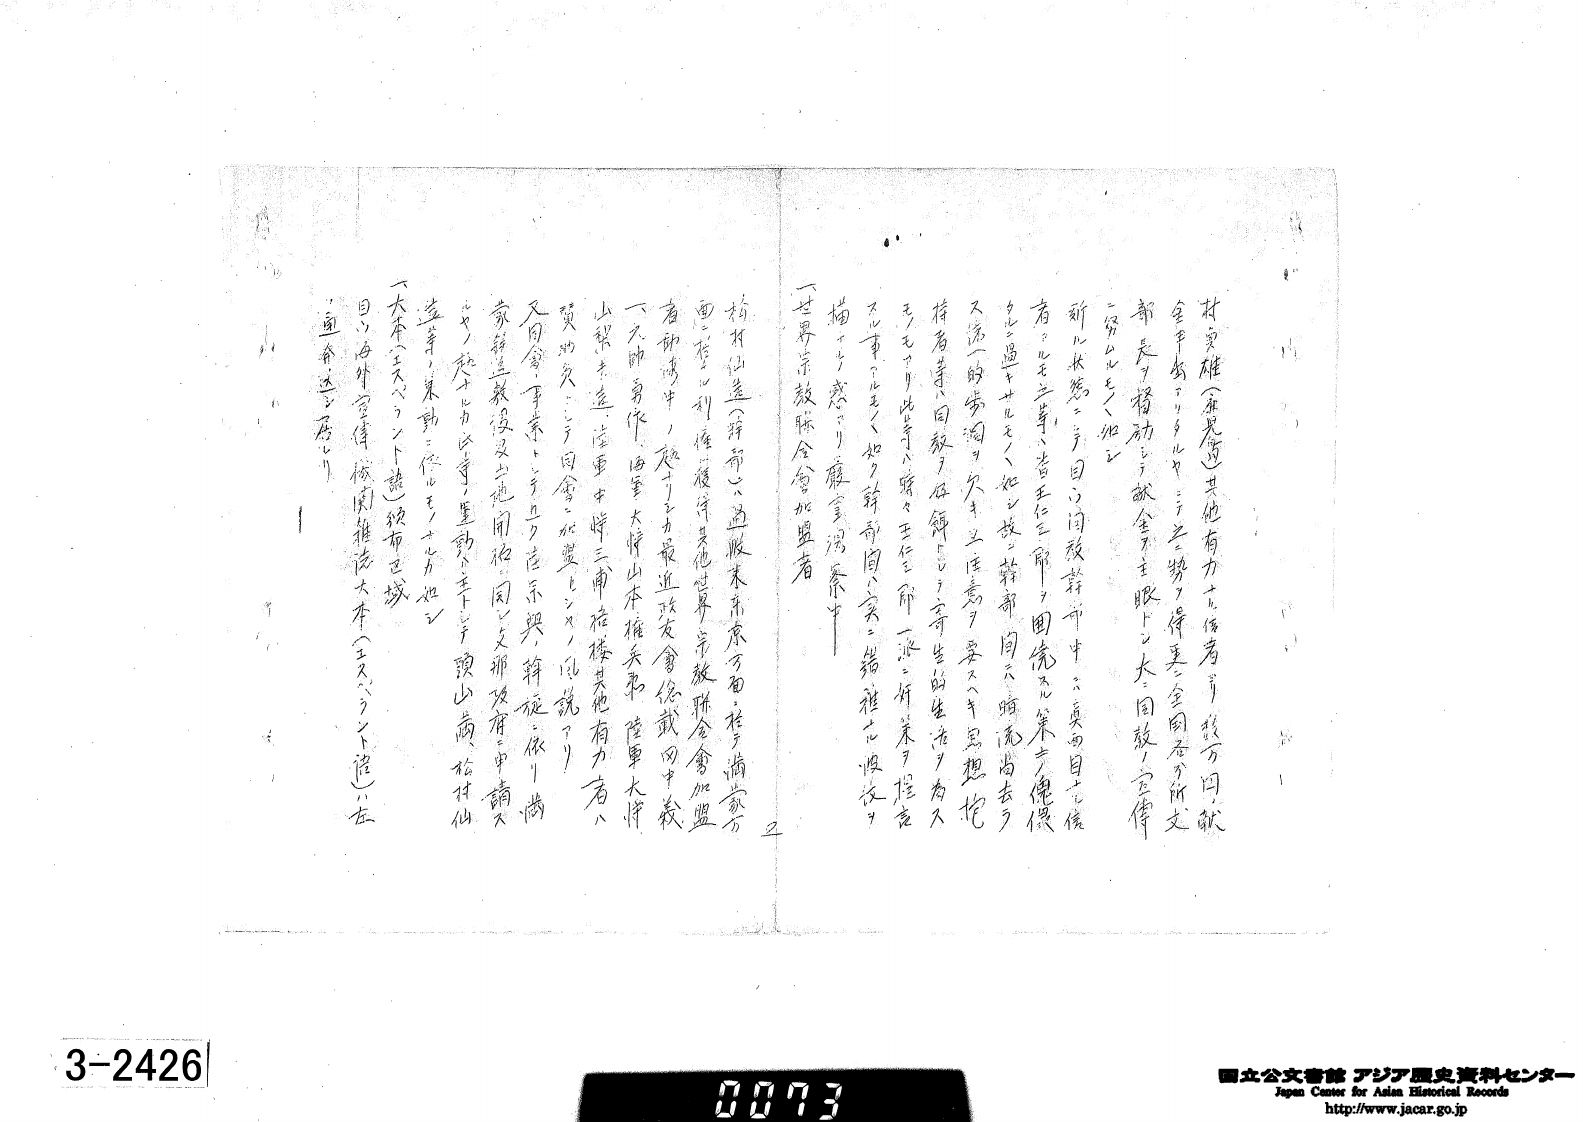 村宗雄（鹿児島）其他有力ナル信者ヨリ数万円ノ献
金申出アリタルヤニテ之ニ勢ヲ得更ニ全国各分所支
部長ヲ督励シテ献金ヲ主眼トシ大ニ同教ノ宣傳
ニ努ムルモノヽ如シ
斯ル状態ニシテ目下同教幹部中ニハ真面目ナル信
者アルモ之等ハ皆王仁三郎ヲ囲繞スル策士ノ傀儡
タルニ過キサルモノヽ如シ故ニ幹部間ニハ暗流尚去ラ
ス統一的歩調ヲ欠キ注意ヲ要スヘキ思想抱
持者等ハ同教ヲ好餌トシテ寄生的生活ヲ為ス
モノモアリ此等ハ時々王仁三郎一派ニ奸策ヲ提言
スル事アルモノヽ如ク幹部間ハ実ニ錯雑ナル波紋ヲ
描ケルノ感アリ厳重視察中
一、世界宗教聯合會加盟者
松村仙造（幹部）ハ過般来東京方面ニ於テ満蒙方
面ニ於ケル利権獲得其他世界宗教聯合會加盟
者勧誘中ノ趣ナリシカ最近政友會総裁田中義
一、元帥 海軍大将山本権兵衛 陸軍大将
山梨半造、陸軍中将三浦 其他有力者ハ
賛助員トシテ同會ニ加盟セシヤノ風説アリ
又同會ノ事業トシテ ノ斡旋ニ依リ満
蒙 教後及土地開拓ニ関シ支那政府ニ申請ス
ルヤノ趣ナルカ此等ノ策動ハ主トシテ頭山満、松村仙
造等ノ策動ニ依ルモノナルカ如シ
一、大本（エスペラント語）頒布区域
目下海外宣傳機関雑誌大本（エスペラント語）ハ左
ノ通発送シ居レリ
2
3-2426
0073
国立公文書館 アジア歴史資料センター
Japan Center for Asian Historical Records
http://www.jacar.go.jp